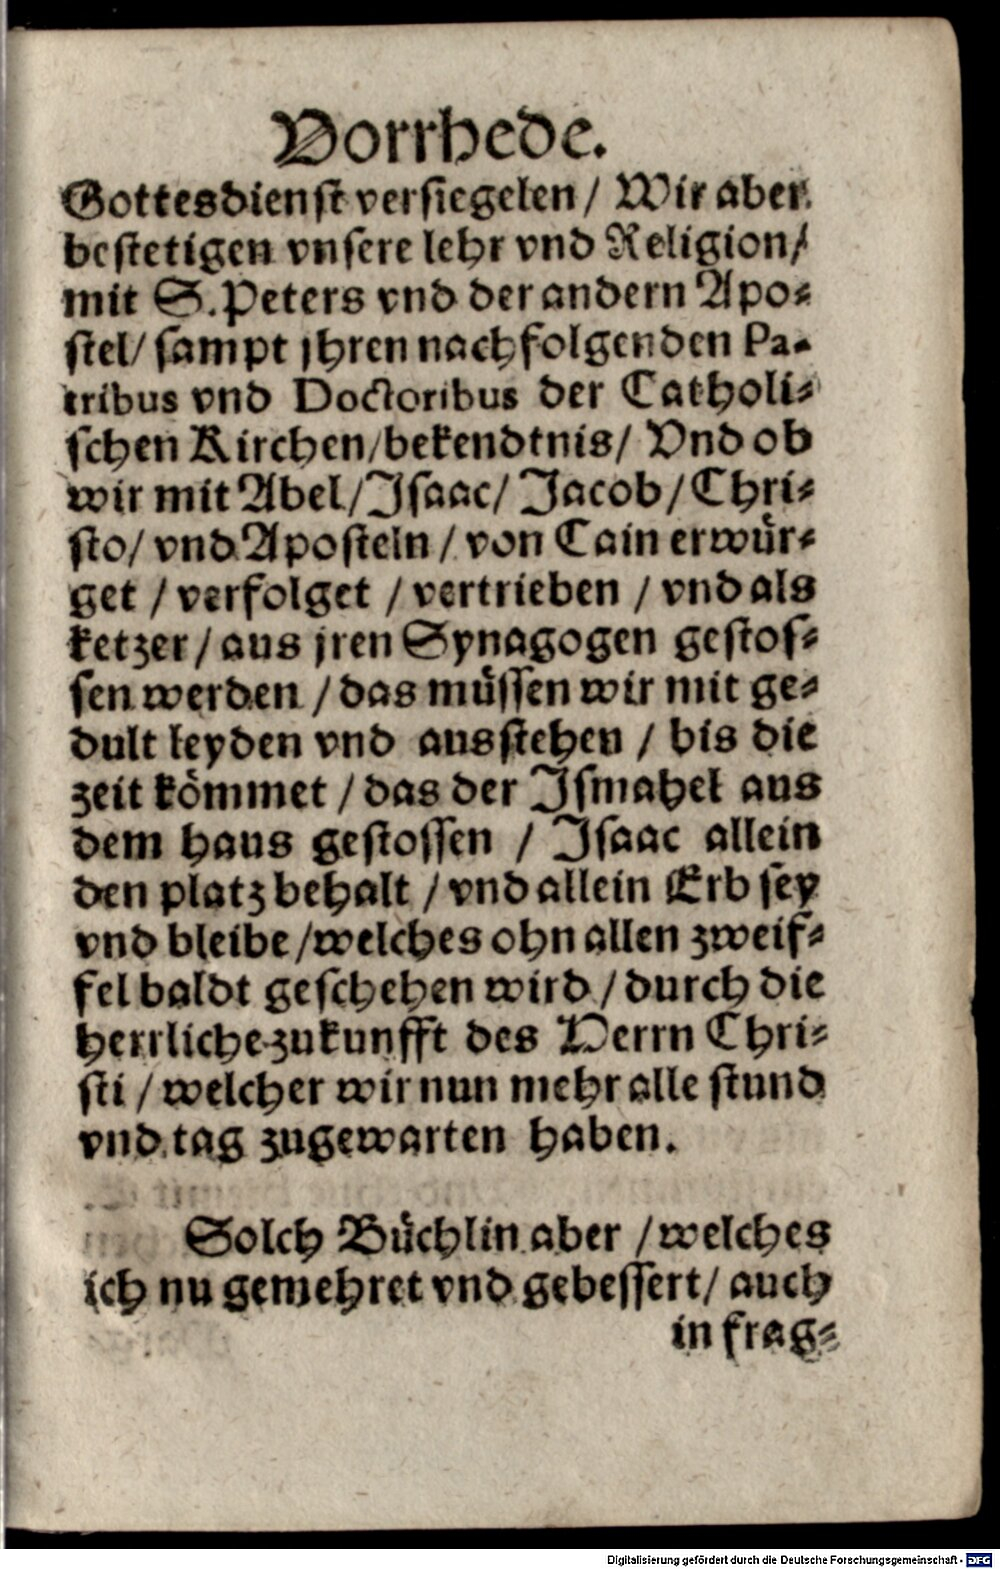 Vorrhede.
Gottesdienst versiegelen / Wir aber
bestetigen vnsere lehr vnd Religion /
mit S. Peters vnd der andern Apo-
stel / sampt jhren nachfolgenden Pa-
tribus vnd Doctoribus der Catholi-
schen Kirchen / bekendtnis / Vnd ob
wir mit Abel / Isaac / Jacob / Chri-
sto / vnd Aposteln / von Cain erwür-
get / verfolget / vertrieben / vnd als
ketzer / aus jren Synagogen gestos-
sen werden / das müssen wir mit ge-
dult leyden vnd ausstehen / bis die
zeit kömmet / das der Ismahel aus
dem haus gestossen / Isaac allein
den platz behalt / vnd allein Erb sey
vnd bleibe / welches ohn allen zweif-
fel baldt geschehen wird / durch die
herrliche zukunfft des Herrn Chri-
sti / welcher wir nun mehr alle stund
vnd tag zugewarten haben.
Solch Büchlin aber / welches
ich nu gemehret vnd gebessert / auch
in frag-
Digitalisierung gefördert durch die Deutsche Forschungsgemeinschaft - DFG